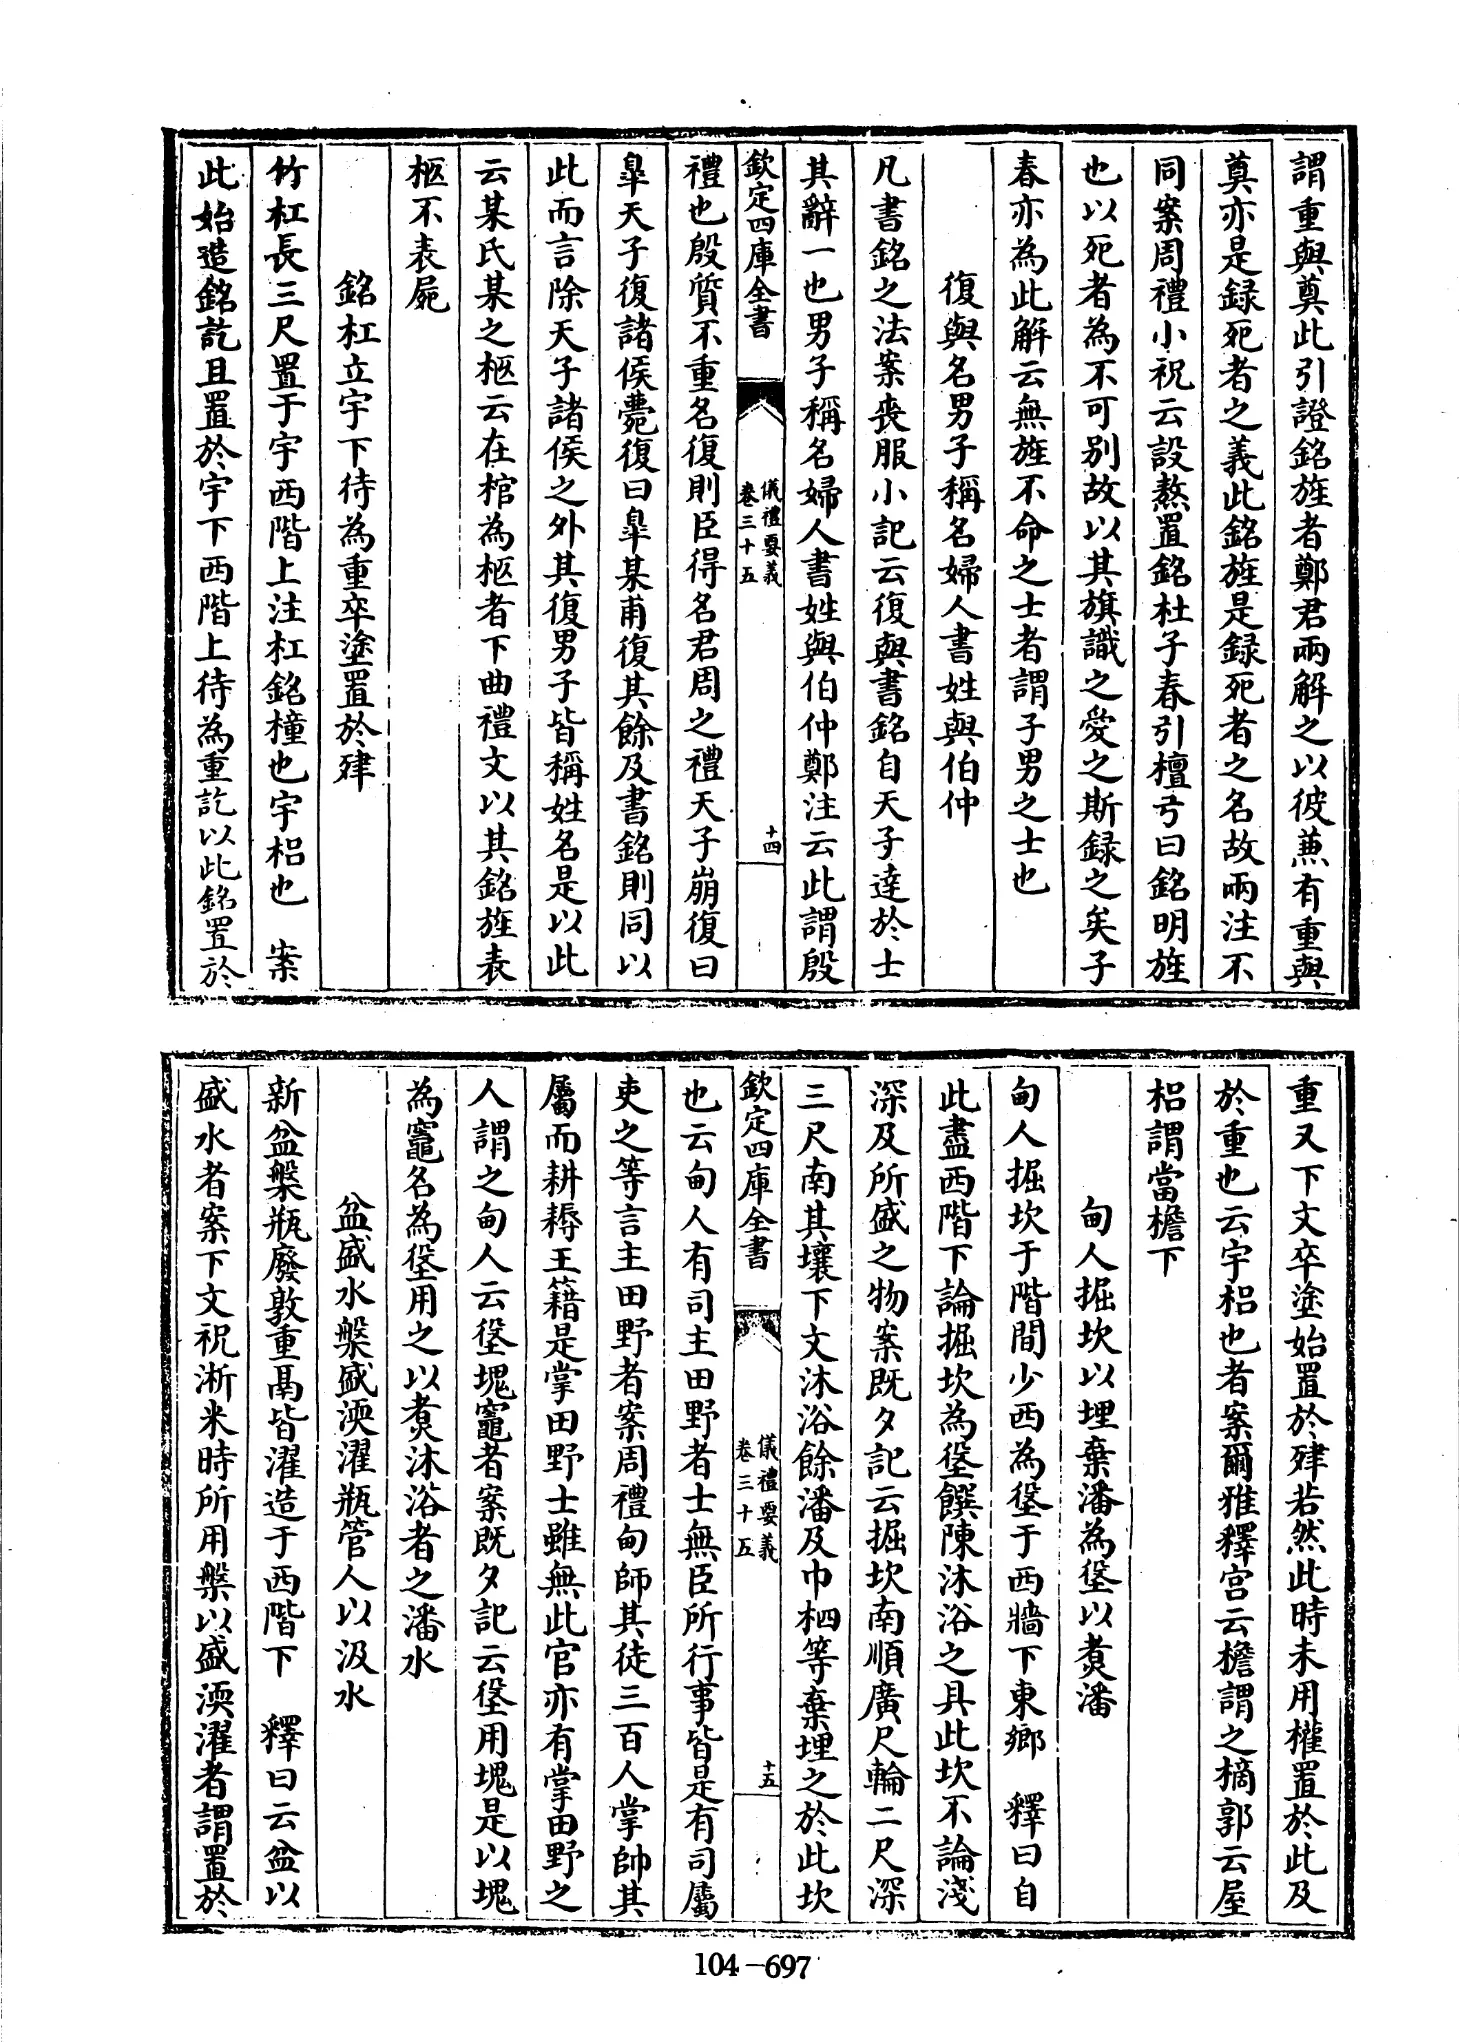 謂重與奠此引證銘旌者鄭君兩解之以彼兼有重與
奠亦是録死者之義此銘旌是録死者之名故兩注不
同案周禮小祝云設熬置銘杜子春引檀弓曰銘明旌
也以死者為不可别故以其旗識之愛之斯録之矣子
春亦為此解云無旌不命之士者謂子男之士也
復與名男子稱名婦人書姓與伯仲
凡書銘之法案喪服小記云復與書銘自天子達於士
其辭一也男子稱名婦人書姓與伯仲鄭注云此謂殷
欽定四庫全書
儀禮要義
卷三十五
十四
禮也殷質不重名復則臣得名君周之禮天子崩復曰
臯天子復諸侯薨復曰臯某甫復其餘及書銘則同以
此而言除天子諸侯之外其復男子皆稱姓名是以此
云某氏某之柩云在棺為柩者下曲禮文以其銘旌表
柩不表屍
銘杠立宇下待為重卒塗置於肂
竹杠長三尺置于宇西階上注杠銘橦也宇梠也 案
此始造銘訖且置於宇下西階上待為重訖以此銘置於
重又下文卒塗始置於肂若然此時未用權置於此及
於重也云宇梠也者案爾雅釋宫云檐謂之樀郭云屋
梠謂當檐下
甸人掘坎以埋棄潘為垼以煑潘
甸人掘坎于階間少西為垼于西牆下東鄉 釋曰自
此盡西階下論掘坎為垼饌陳沐浴之具此坎不論淺
深及所盛之物案既夕記云掘坎南順廣尺輪二尺深
三尺南其壤下文沐浴餘潘及巾柶等棄埋之於此坎
欽定四庫全書
儀禮要義
卷三十五
十五
也云甸人有司主田野者士無臣所行事皆是有司屬
吏之等言主田野者案周禮甸師其徒三百人掌帥其
屬而耕耨王籍是掌田野士雖無此官亦有掌田野之
人謂之甸人云垼塊竈者案既夕記云垼用塊是以塊
為竈名為垼用之以煑沐浴者之潘水
盆盛水槃盛渜濯瓶管人以汲水
新盆槃瓶廢敦重鬲皆濯造于西階下 釋曰云盆以
盛水者案下文祝淅米時所用槃以盛渜濯者謂置於
104-697